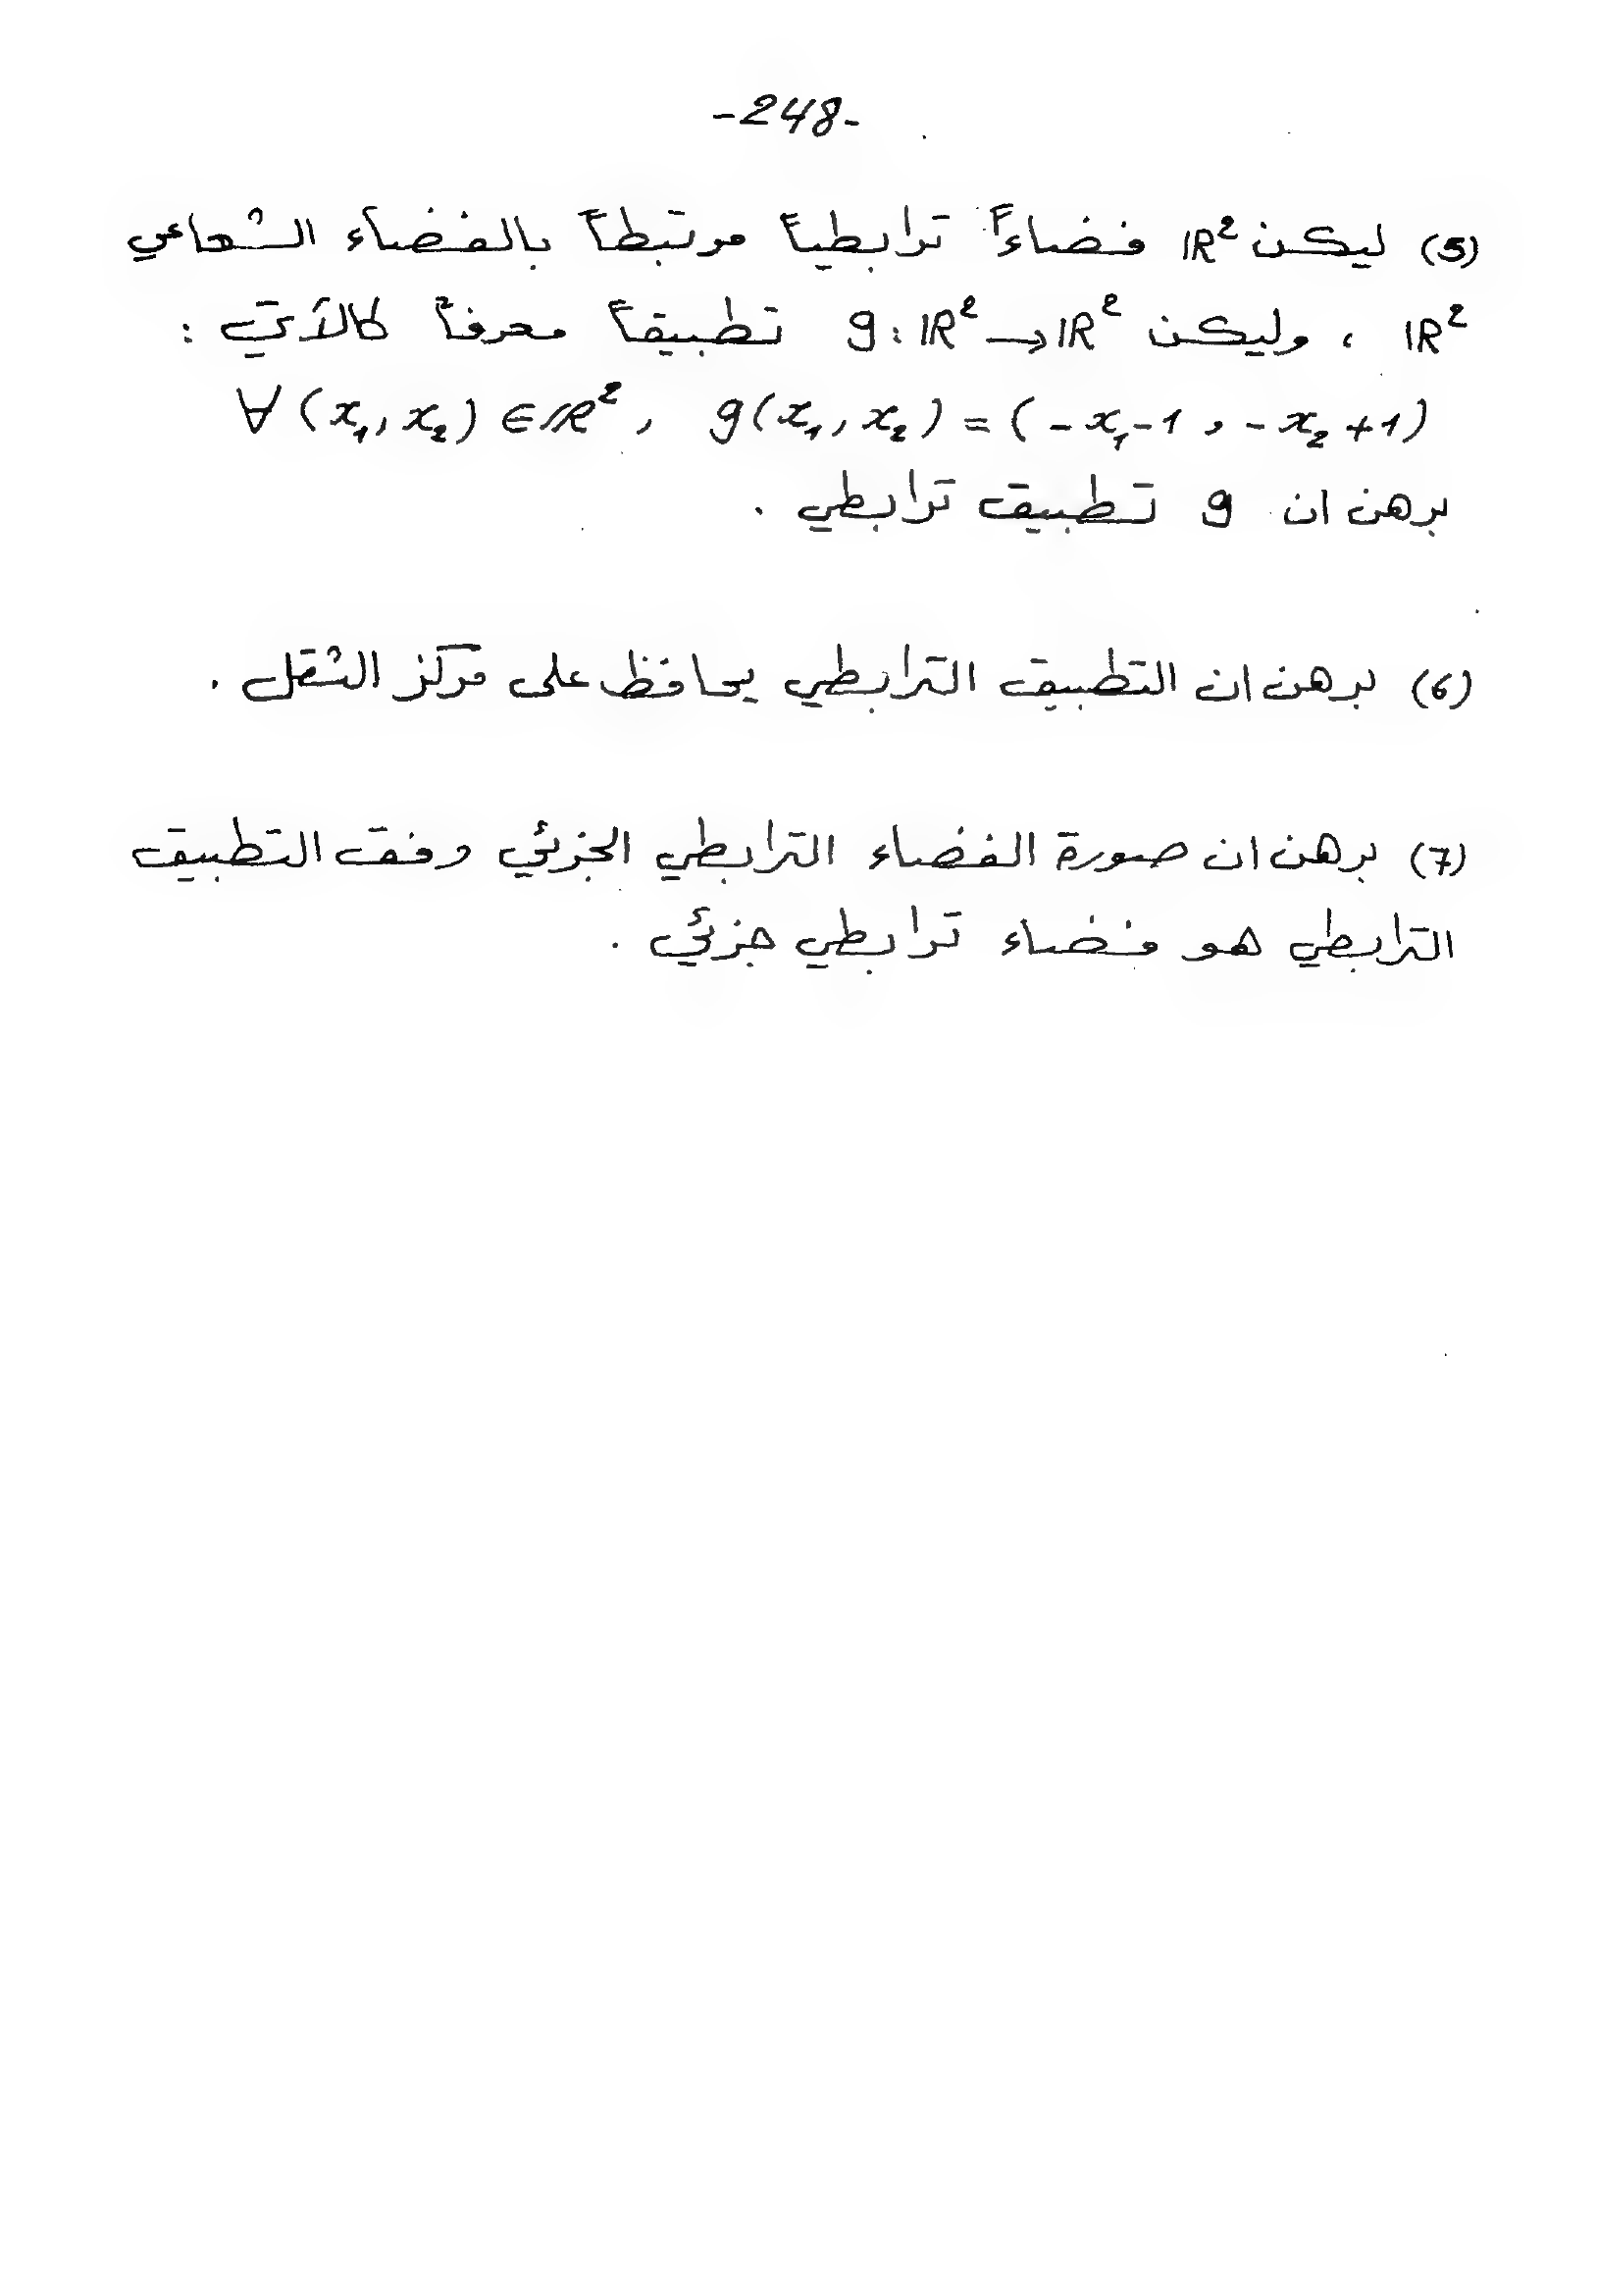 -248-
(5) ليكن IR² فضاءاً ترابطياً مرتبطاً بالفضاء الشعاعي
IR² ، وليكن g : IR² → IR² تطبيقاً معرفاً كالآتي :
∀ (x₁, x₂) ∈ IR² , g(x₁, x₂) = (-x₁-1 , -x₂+1)
برهن ان g تطبيق ترابطي .
(6) برهن ان التطبيق الترابطي يحافظ على مركز الثقل .
(7) برهن ان صورة الفضاء الترابطي الجزئي وفق التطبيق
الترابطي هو فضاء ترابطي جزئي .